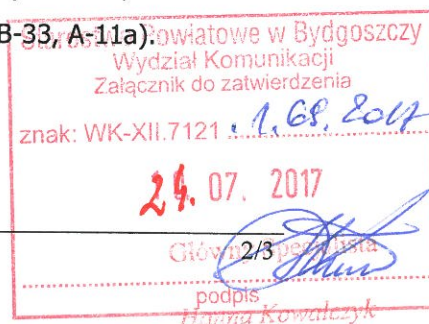 B-33, A-11a).
Starostwo Powiatowe w Bydgoszczy
Wydział Komunikacji
Załącznik do zatwierdzenia
znak: WK-XII.7121.1.68.2017
24. 07. 2017
Główny Specjalista
2/3
podpis
Hanna Kowalczyk